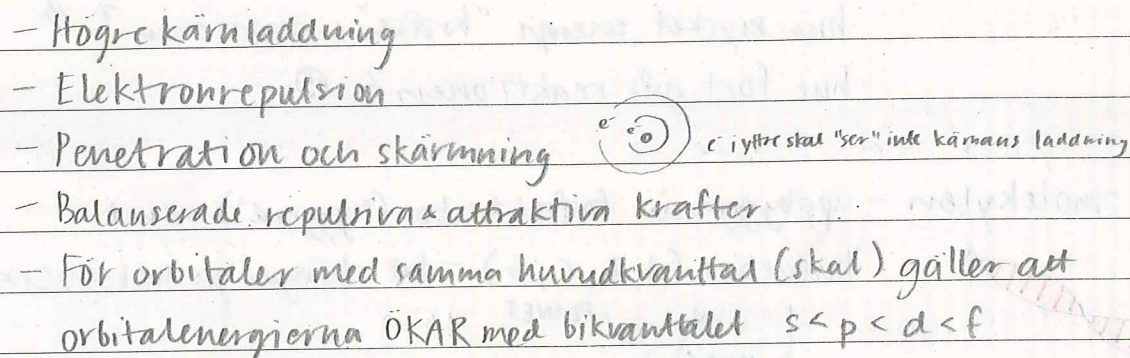 - Högre kärnladdning
- Elektronrepulsion
- Penetration och skärmning e⁻ e⁻ e⁻ i yttre skal "ser" inte kärnans laddning
- Balanserade repulsiva & attraktiva krafter
- För orbitaler med samma huvudkvanttal (skal) gäller att
orbitalenergierna ÖKAR med bikvanttalet s < p < d < f